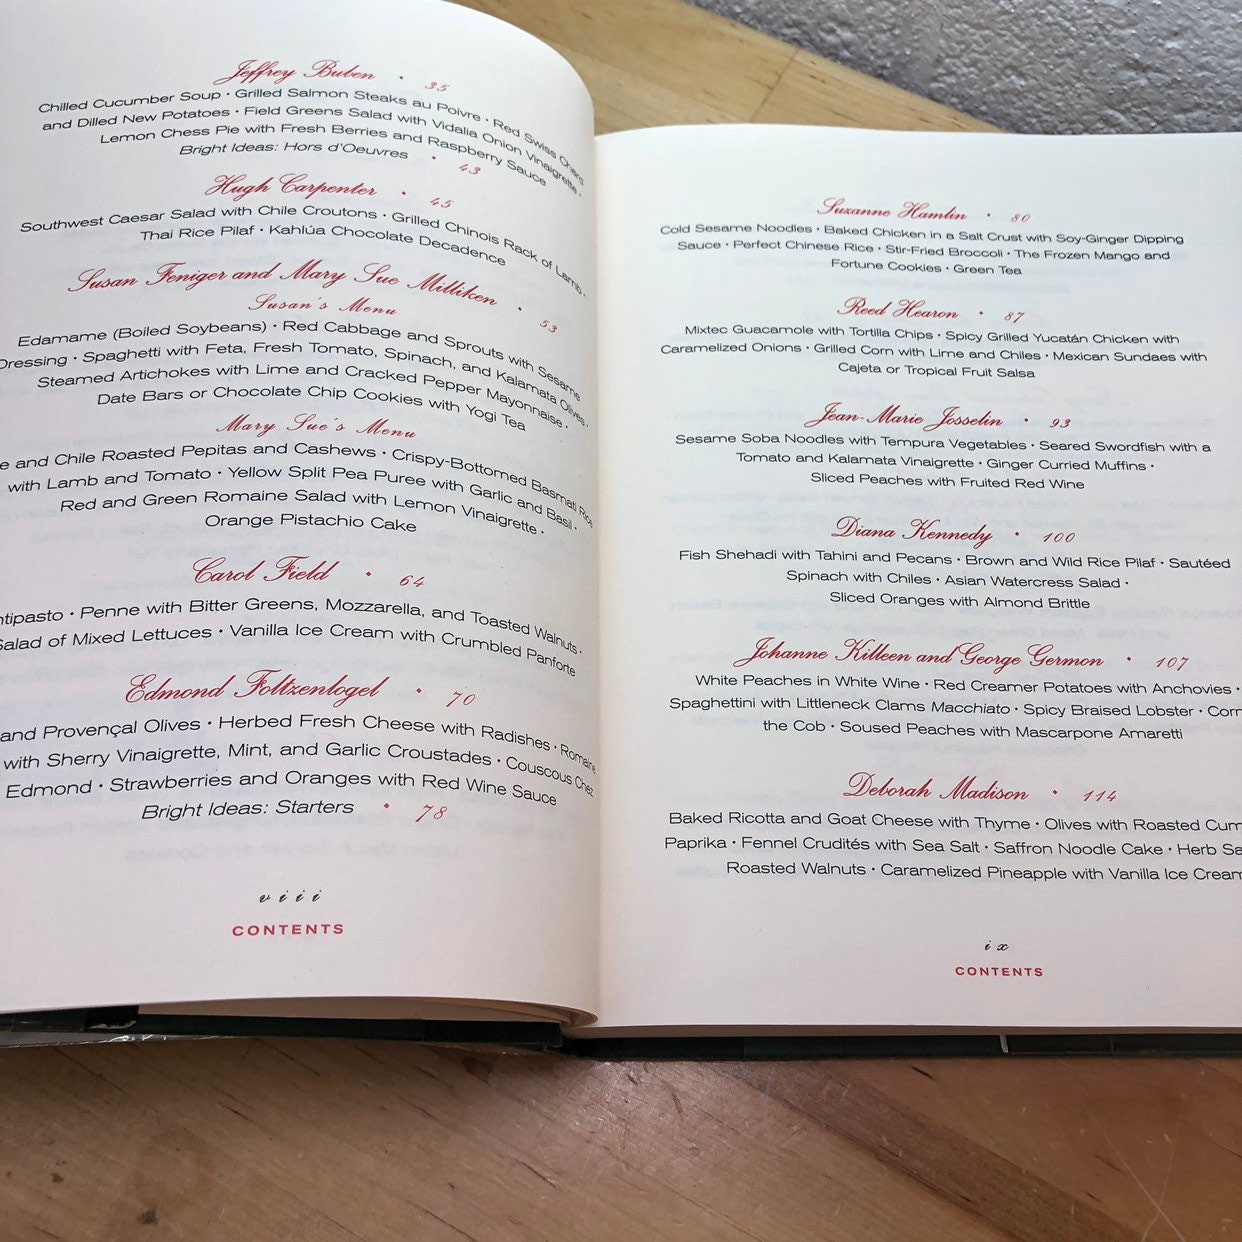 Jeffrey Buben • 35
Chilled Cucumber Soup • Grilled Salmon Steaks au Poivre • Red Swiss Chard
and Dilled New Potatoes • Field Greens Salad with Vidalia Onion Vinaigrette •
Lemon Chess Pie with Fresh Berries and Raspberry Sauce
Bright Ideas: Hors d'Oeuvres • 43
Hugh Carpenter • 45
Southwest Caesar Salad with Chile Croutons • Grilled Chinois Rack of Lamb •
Thai Rice Pilaf • Kahlúa Chocolate Decadence
Susan Feniger and Mary Sue Milliken • 53
Susan's Menu
Edamame (Boiled Soybeans) • Red Cabbage and Sprouts with Sesame
Dressing • Spaghetti with Feta, Fresh Tomato, Spinach, and Kalamata Olives •
Steamed Artichokes with Lime and Cracked Pepper Mayonnaise •
Date Bars or Chocolate Chip Cookies with Yogi Tea
Mary Sue's Menu
and Chile Roasted Pepitas and Cashews • Crispy-Bottomed Basmati Rice
with Lamb and Tomato • Yellow Split Pea Puree with Garlic and Basil •
Red and Green Romaine Salad with Lemon Vinaigrette •
Orange Pistachio Cake
Carol Field • 64
• Penne with Bitter Greens, Mozzarella, and Toasted Walnuts •
Salad of Mixed Lettuces • Vanilla Ice Cream with Crumbled Panforte
Edmond Foltzenlogel • 70
and Provençal Olives • Herbed Fresh Cheese with Radishes • Romaine
with Sherry Vinaigrette, Mint, and Garlic Croustades • Couscous Chez
Edmond • Strawberries and Oranges with Red Wine Sauce
Bright Ideas: Starters • 78
viii
CONTENTS
Suzanne Hamlin • 80
Cold Sesame Noodles • Baked Chicken in a Salt Crust with Soy-Ginger Dipping
Sauce • Perfect Chinese Rice • Stir-Fried Broccoli • The Frozen Mango and
Fortune Cookies • Green Tea
Reed Hearon • 87
Mixtec Guacamole with Tortilla Chips • Spicy Grilled Yucatán Chicken with
Caramelized Onions • Grilled Corn with Lime and Chiles • Mexican Sundaes with
Cajeta or Tropical Fruit Salsa
Jean-Marie Josselin • 93
Sesame Soba Noodles with Tempura Vegetables • Seared Swordfish with a
Tomato and Kalamata Vinaigrette • Ginger Curried Muffins •
Sliced Peaches with Fruited Red Wine
Diana Kennedy • 100
Fish Shehadi with Tahini and Pecans • Brown and Wild Rice Pilaf • Sautéed
Spinach with Chiles • Asian Watercress Salad •
Sliced Oranges with Almond Brittle
Johanne Killeen and George Germon • 107
White Peaches in White Wine • Red Creamer Potatoes with Anchovies •
Spaghettini with Littleneck Clams Macchiato • Spicy Braised Lobster • Corn
the Cob • Soused Peaches with Mascarpone Amaretti
Deborah Madison • 114
Baked Ricotta and Goat Cheese with Thyme • Olives with Roasted
Paprika • Fennel Crudités with Sea Salt • Saffron Noodle Cake • Herb
Roasted Walnuts • Caramelized Pineapple with Vanilla Ice Cream
ix
CONTENTS